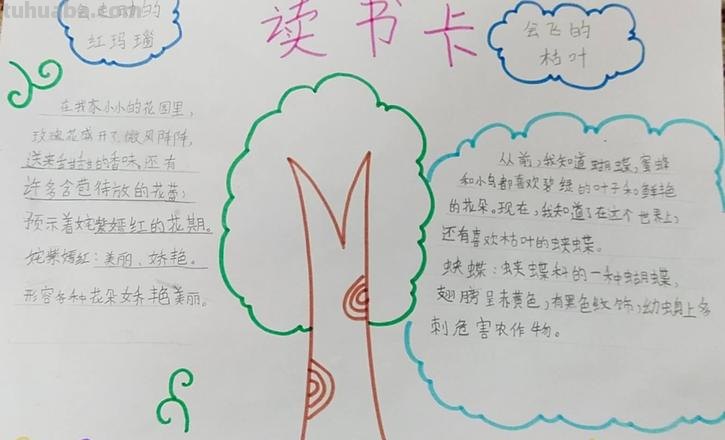 读书卡
的
红玛瑙
会飞的
枯叶
在我家小小的花园里,
玫瑰花盛开了,微风阵阵,
送来甜甜的香味,还有
许多含苞待放的花蕾,
预示着姹紫嫣红的花期。
姹紫嫣红:美丽、娇艳。
形容各种花朵娇艳美丽。
从前,我知道蝴蝶,蜜蜂
和小鸟都喜欢碧绿的叶子和鲜艳
的花朵。现在,我知道了在这个世界上,
还有喜欢枯叶的蛱蝶。
蛱蝶:蛱蝶科的一种蝴蝶,
翅膀呈赤黄色,有黑色纹饰,幼虫身上多
刺危害农作物。